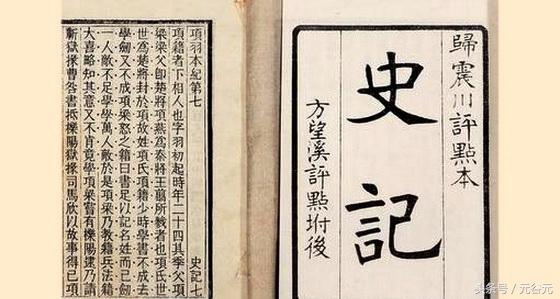 歸震川評點本
史記
方望溪評點坿後
項羽本紀第七 史記七
項籍者下相人也字羽初起時年二十四其季父項
梁梁父即楚將項燕爲秦將王翦所戮者也項氏世
世爲楚將封於項故姓項氏項籍少時學書不成去
學劍又不成項梁怒之籍曰書足以記名姓而已劍
一人敵不足學學萬人敵於是項梁乃教籍兵法籍
大喜略知其意又不肯竟學項梁嘗有櫟陽逮乃請
蘄獄掾曹咎書抵櫟陽獄掾司馬欣以故事得已項
头条号 / 元谷元